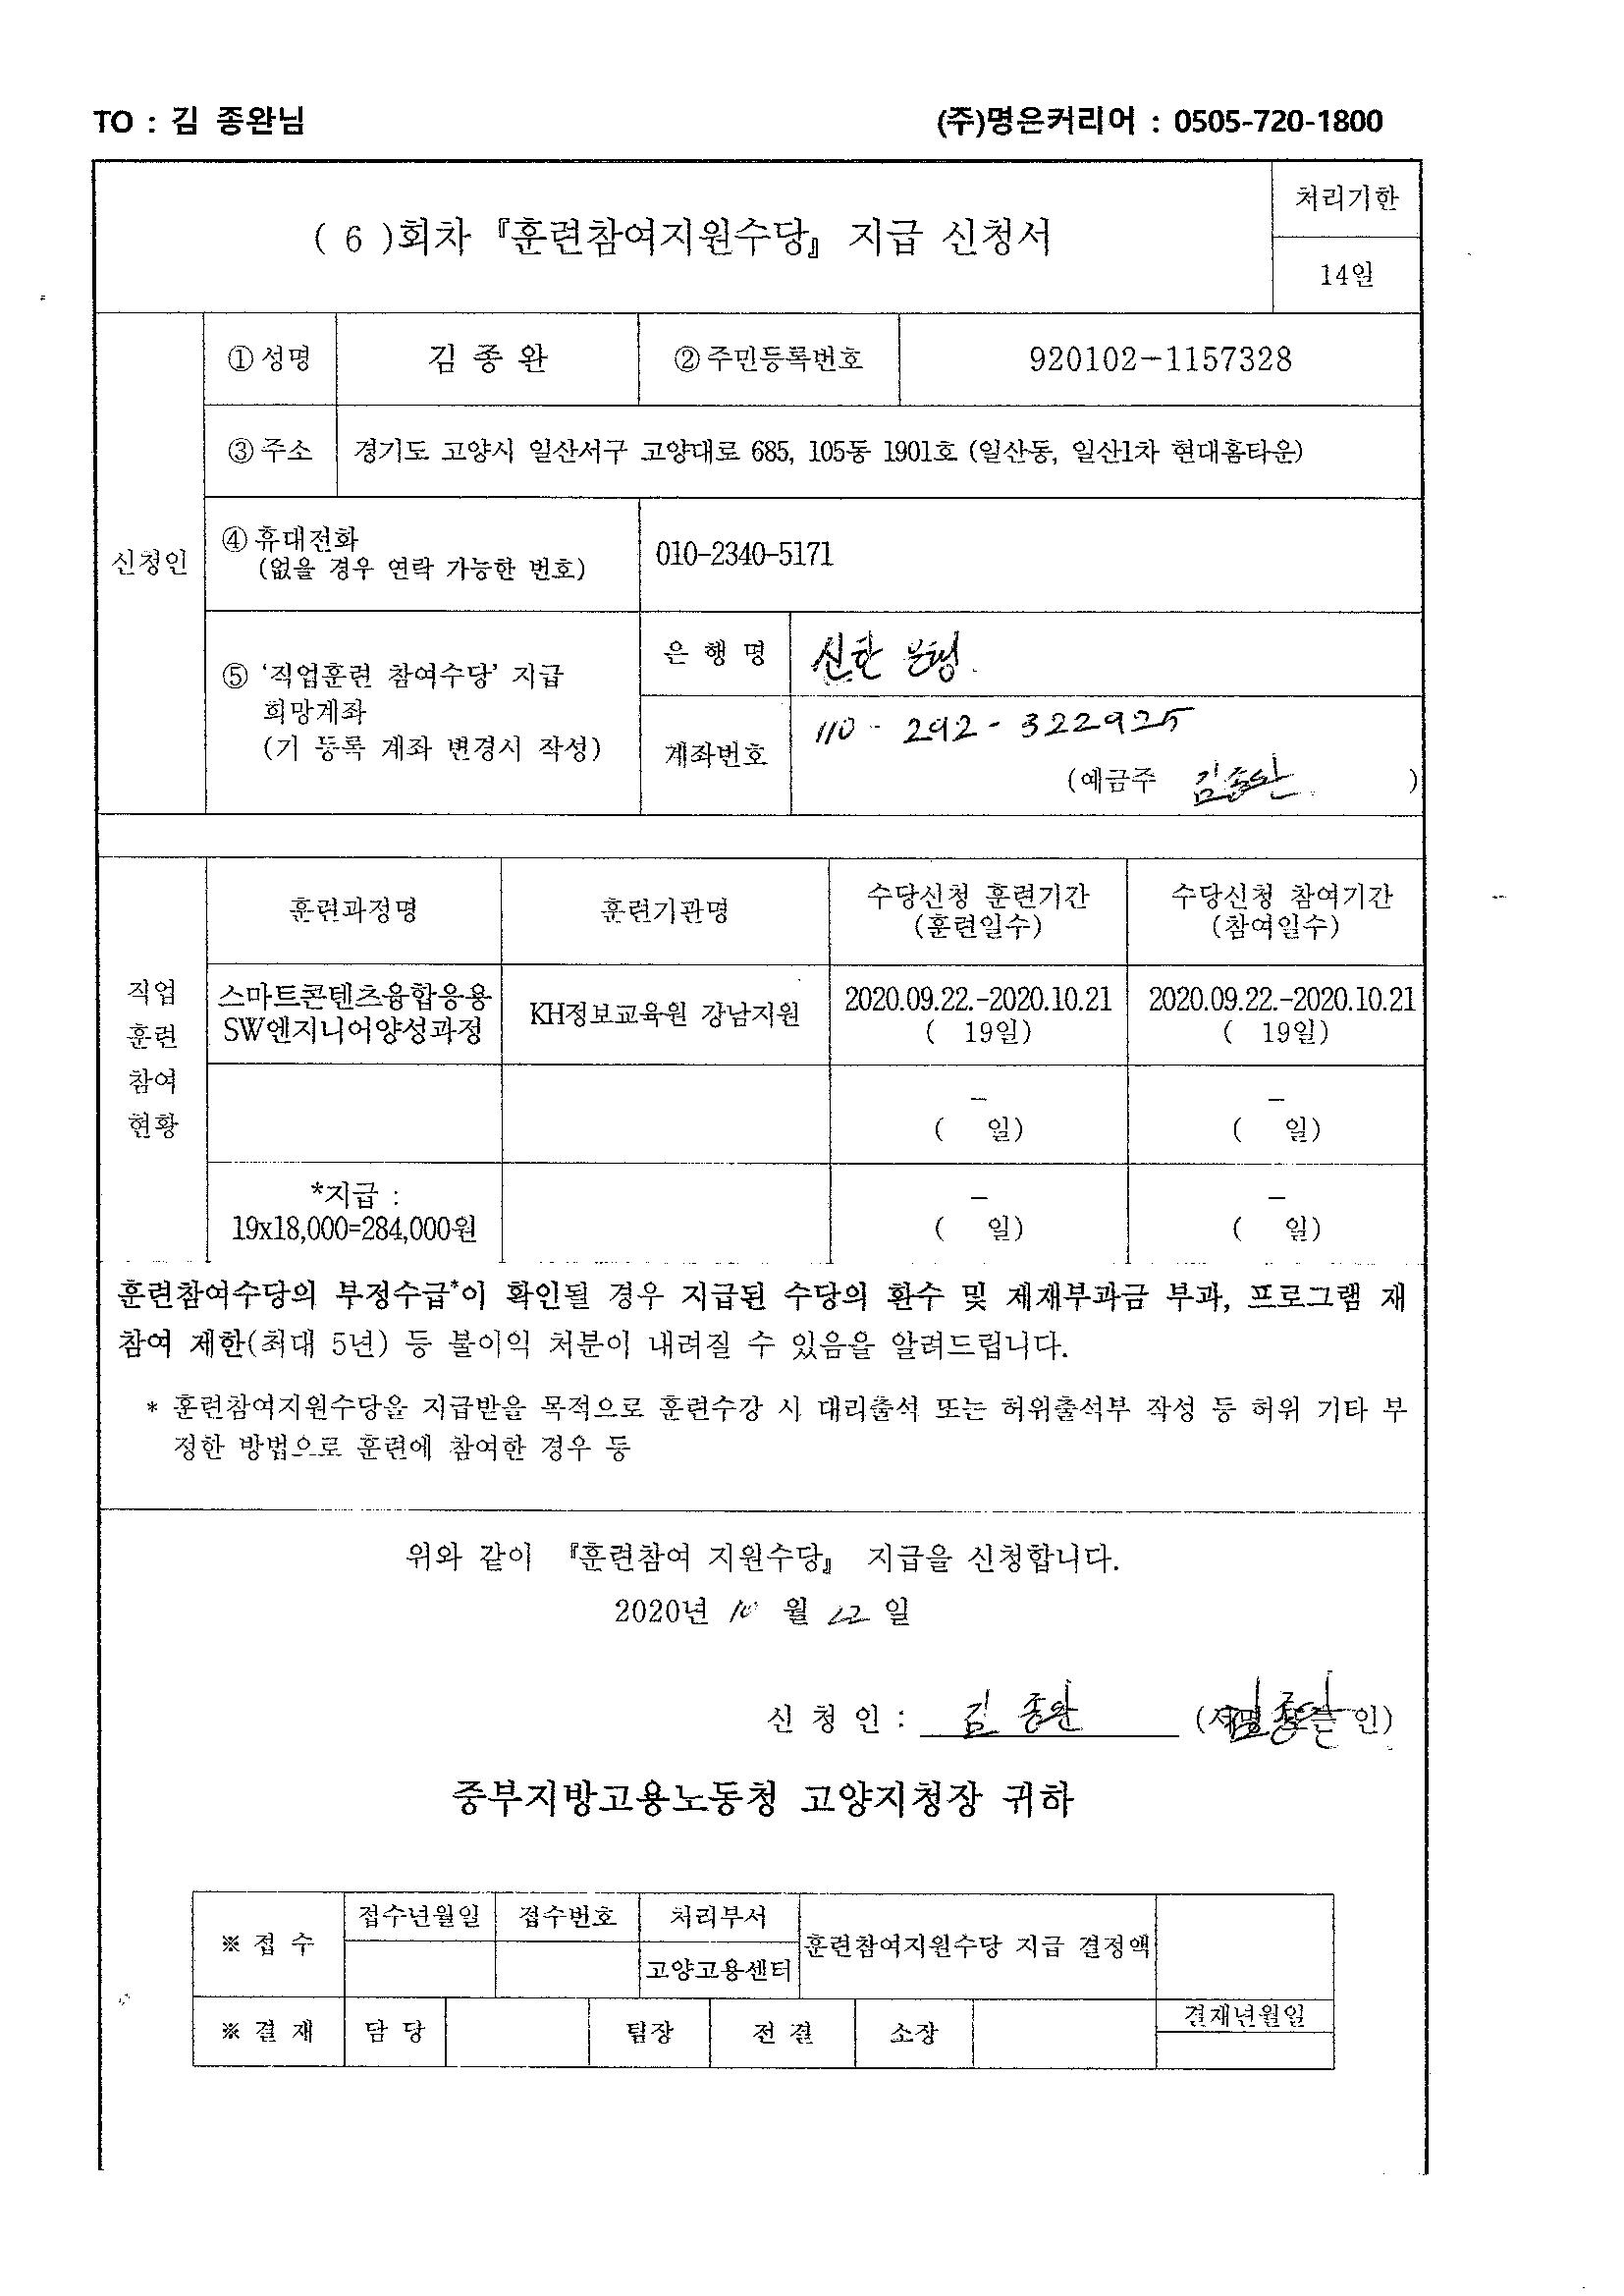 TO : 김 종완님
(주)명은커리어 : 0505-720-1800
( 6 )회차 『훈련참여지원수당』 지급 신청서
처리기한
14일
신청인
① 성명
김 종 완
② 주민등록번호
920102-1157328
③ 주소
경기도 고양시 일산서구 고양대로 685, 105동 1901호 (일산동, 일산1차 현대홈타운)
④ 휴대전화
(없을 경우 연락 가능한 번호)
010-2340-5171
⑤ '직업훈련 참여수당' 지급
희망계좌
(기 등록 계좌 변경시 작성)
은 행 명
신한 은행.
계좌번호
110 - 292 - 322925
(예금주 김종완 )
직업
훈련
참여
현황
훈련과정명
훈련기관명
수당신청 훈련기간
(훈련일수)
수당신청 참여기간
(참여일수)
스마트콘텐츠융합응용
SW엔지니어양성과정
KH정보교육원 강남지원
2020.09.22.-2020.10.21
( 19일)
2020.09.22.-2020.10.21
( 19일)
-
( 일)
-
( 일)
*지급 :
19x18,000=284,000원
-
( 일)
-
( 일)
훈련참여수당의 부정수급*이 확인될 경우 지급된 수당의 환수 및 제재부과금 부과, 프로그램 재
참여 제한(최대 5년) 등 불이익 처분이 내려질 수 있음을 알려드립니다.
* 훈련참여지원수당을 지급받을 목적으로 훈련수강 시 대리출석 또는 허위출석부 작성 등 허위 기타 부
정한 방법으로 훈련에 참여한 경우 등
위와 같이 『훈련참여 지원수당』 지급을 신청합니다.
2020년 10 월 22 일
신 청 인 : 김 종완 (서명 또는 인)
김종완
중부지방고용노동청 고양지청장 귀하
※ 접 수
접수년월일
접수번호
처리부서
고양고용센터
훈련참여지원수당 지급 결정액
※ 결 재
담 당
팀장
전 결
소장
결재년월일